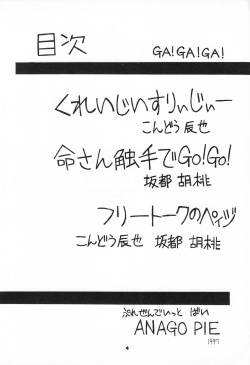 目次
GA!GA!GA!
くれいじいすりいじぃー
こんどう辰也
命さん触手でGO!GO!
坂都 胡桃
フリートークのペイジ
こんどう辰也 坂都 胡桃
ぷれぜんでいっと ばい
ANAGO PIE
1997
4